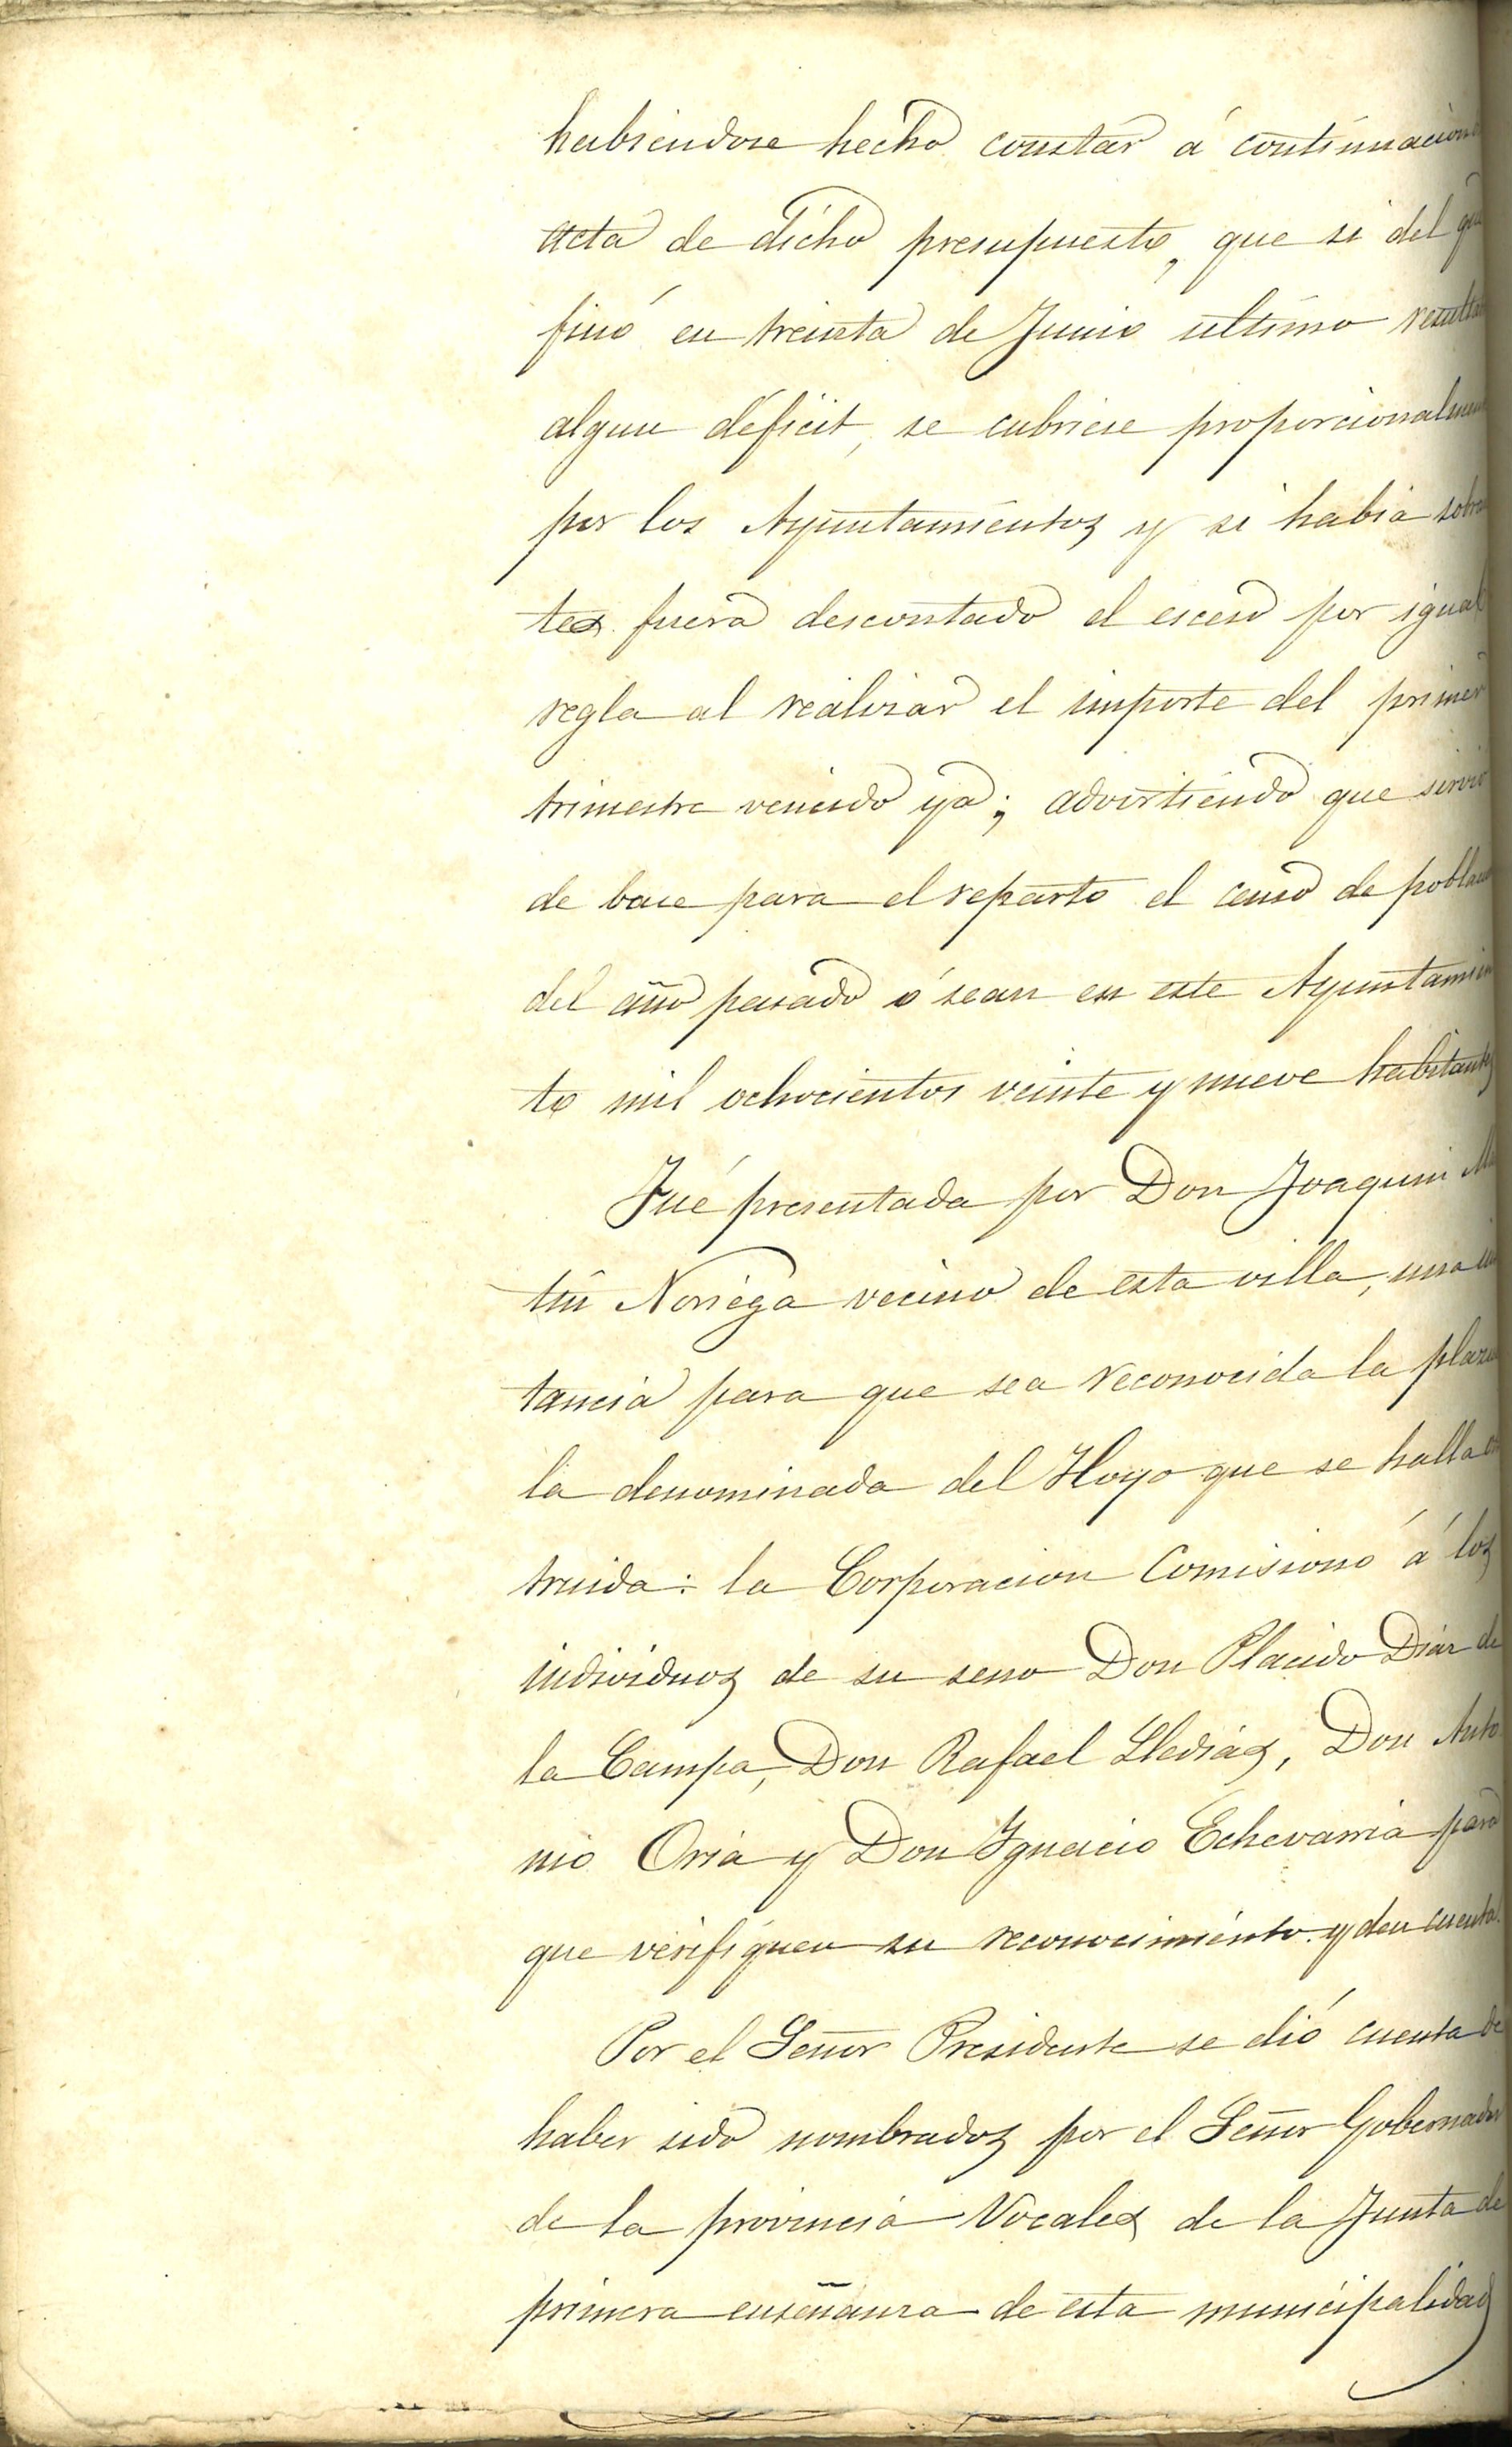 habiendose hecho constar á continuacion
acta de dicho presupuesto, que si del que
finó en treinta de Junio ultimo result
algun déficit, se cubriese proporcionalmen
por los Ayuntamientos y si habia sobra
tes fuera descontado el esceso por igual
regla al realizar el importe del primer
trimestre vencido ya; advirtiendo que sirvió
de base para el reparto el censo de poblac
del año pasado ó sean en este Ayuntamien
to mil ochocientos veinte y nueve habitantes
Fué presentada por Don Joaquin Ma
tin Noriega vecino de esta villa, una in
tancia para que sea reconocida la plazue
la denominada del Hoyo que se halla
truida: la Corporacion Comisionó á los
individuos de su seno Don Placido Diaz de
la Campa, Don Rafael Lledías, Don Anto
nio Oria y Don Ignacio Echevarria para
que verifiquen su reconocimiento y den cuenta.
Por el Señor Presidente se dió cuenta de
haber sido nombrados por el Señor Gobernador
de la provincia Vocales de la Junta de
primera enseñanza de esta municipalidad